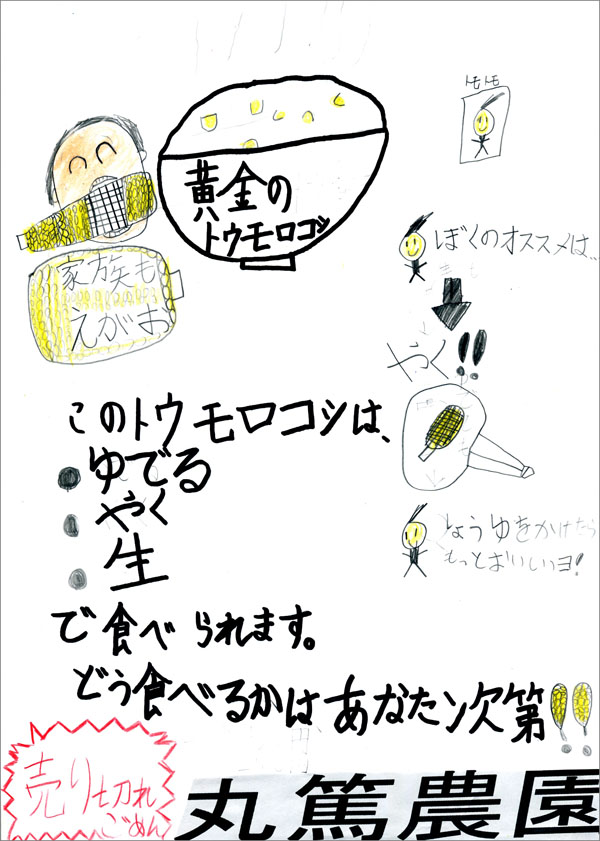 黄金の
トウモロコシ
トモトモ
家族も
えがお
ぼくのオススメは…
やく!!
しょうゆをかけたら
もっとおいしいヨ!
このトウモロコシは、
●ゆでる
●やく
●生
で食べられます。
どう食べるかはあなたン次第!!
売り切れ
ごめん
丸篤農園